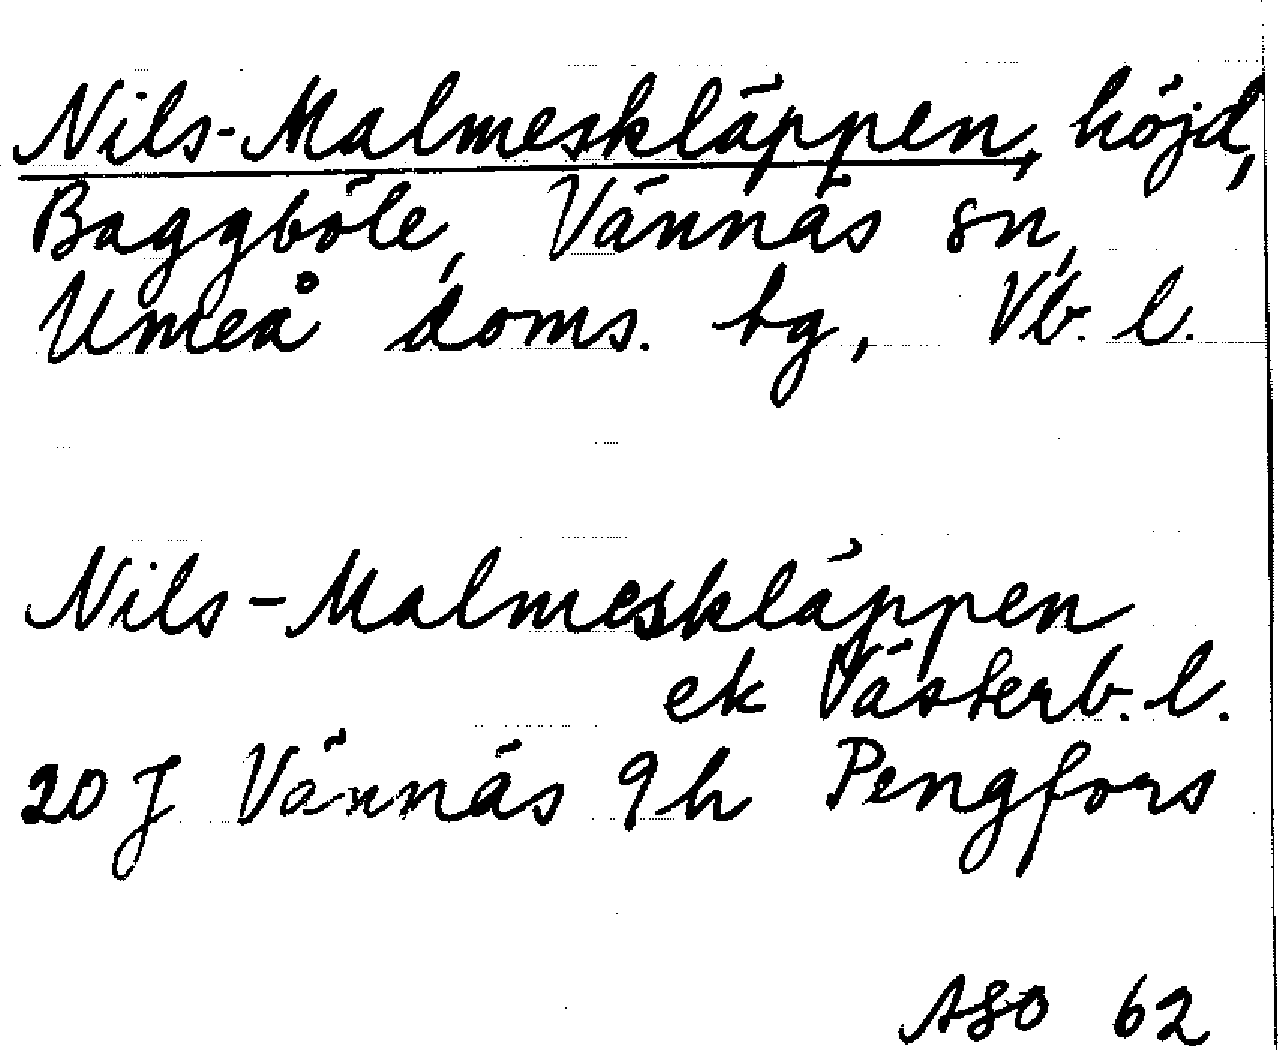 Nils-Malmeskläppen, höjd,
Baggböle, Vännäs sn,
Umeå doms. tg, Vb. l.
Nils-Malmeskläppen
ek Västerb. l.
20 J Vännäs 9h Pengfors
ASO 62